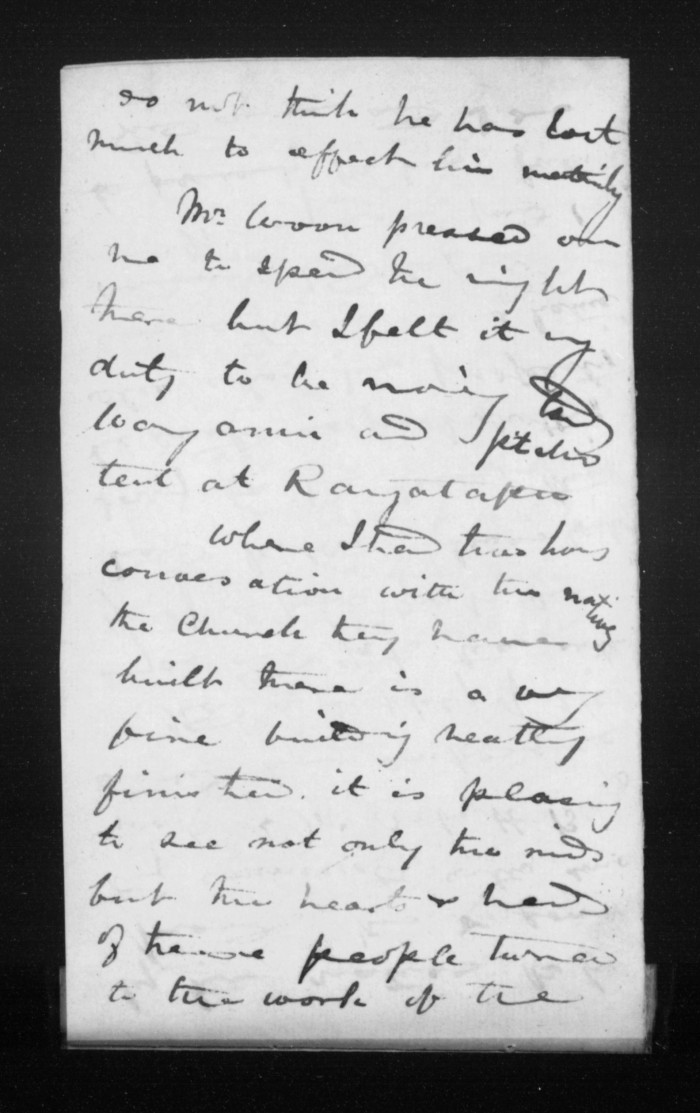 do not think he has lost
much to effect his
Mr. Woon pressed on
me to spend the night
here but I felt it my
duty to be moving
and pitched
tent at Rangatapu
where I had two hours
conversation with the natives
the Church they have
built there is a very
fine building neatly
finished. it is pleasing
to see not only the
but the hearts & head
of these people turned
to the work of the